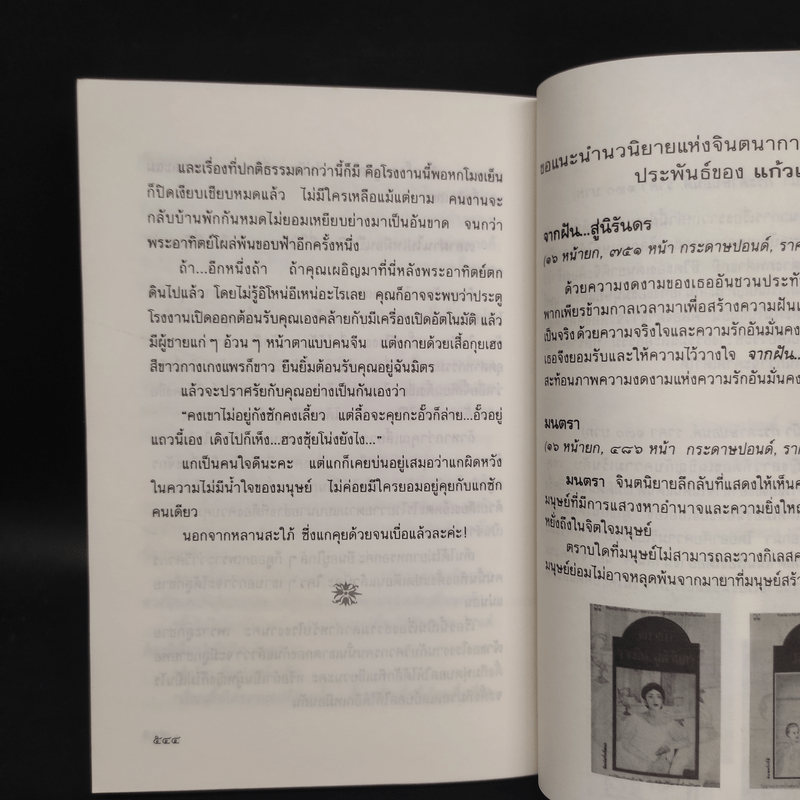 และเรื่องที่ปกติธรรมดากว่านี้ก็มี คือโรงงานนี้พอหกโมงเย็น
ก็ปิดเงียบเชียบหมดแล้ว ไม่มีใครเหลือแม้แต่ยาม คนงานจะ
กลับบ้านพักกันหมดไม่ยอมเหยียบย่างมาเป็นอันขาด จนกว่า
พระอาทิตย์โผล่พ้นขอบฟ้าอีกครั้งหนึ่ง
ถ้า...อีกหนึ่งถ้า ถ้าคุณเผอิญมาที่นี่หลังพระอาทิตย์ตก
ดินไปแล้ว โดยไม่รู้อิโหน่อิเหน่อะไรเลย คุณก็อาจจะพบว่าประตู
โรงงานเปิดออกต้อนรับคุณเองคล้ายกับมีเครื่องเปิดอัตโนมัติ แล้ว
มีผู้ชายแก่ ๆ อ้วน ๆ หน้าตาแบบคนจีน แต่งกายด้วยเสื้อกุยเฮง
สีขาวกางเกงแพรก็ขาว ยืนยิ้มต้อนรับคุณอยู่ฉันมิตร
แล้วจะปราศรัยกับคุณอย่างเป็นกันเองว่า
"คงเขาไม่อยู่กังซักคงเลี้ยว แต่ลื้อจะคุยกะอั๊วก็ล่าย...อั๊วอยู่
แถวนี้เอง เดิงไปก็เห็ง...ฮวงซุ้ยโน่งยังไง..."
แกเป็นคนใจดีนะคะ แต่แกก็เคยบ่นอยู่เสมอว่าแกผิดหวัง
ในความไม่มีน้ำใจของมนุษย์ ไม่ค่อยมีใครยอมอยู่คุยกับแกซัก
คนเดียว
นอกจากหลานสะใภ้ ซึ่งแกคุยด้วยจนเบื่อแล้วละค่ะ!
๕๔๔
ขอแนะนำนวนิยายแห่งจินตนากา
ประพันธ์ของ แก้วเ
จากฝัน...สู่นิรันดร
(๑๖ หน้ายก, ๗๕๑ หน้า กระดาษปอนด์, ราค
ด้วยความงดงามของเธออันชวนประทั
พากเพียรข้ามกาลเวลามาเพื่อสร้างความฝันเ
เป็นจริง ด้วยความจริงใจและความรักอันมั่นคง
เธอจึงยอมรับและให้ความไว้วางใจ จากฝัน...
สะท้อนภาพความงดงามแห่งความรักอันมั่นคง
มนตรา
(๑๖ หน้ายก, ๔๘๖ หน้า กระดาษปอนด์, ราค
มนตรา จินตนิยายลึกลับที่แสดงให้เห็นค
มนุษย์ที่มีการแสวงหาอำนาจและความยิ่งใหญ
หยั่งถึงในจิตใจมนุษย์
ตราบใดที่มนุษย์ไม่สามารถละวางกิเลสค
มนุษย์ย่อมไม่อาจหลุดพ้นจากมายาที่มนุษย์สร้า